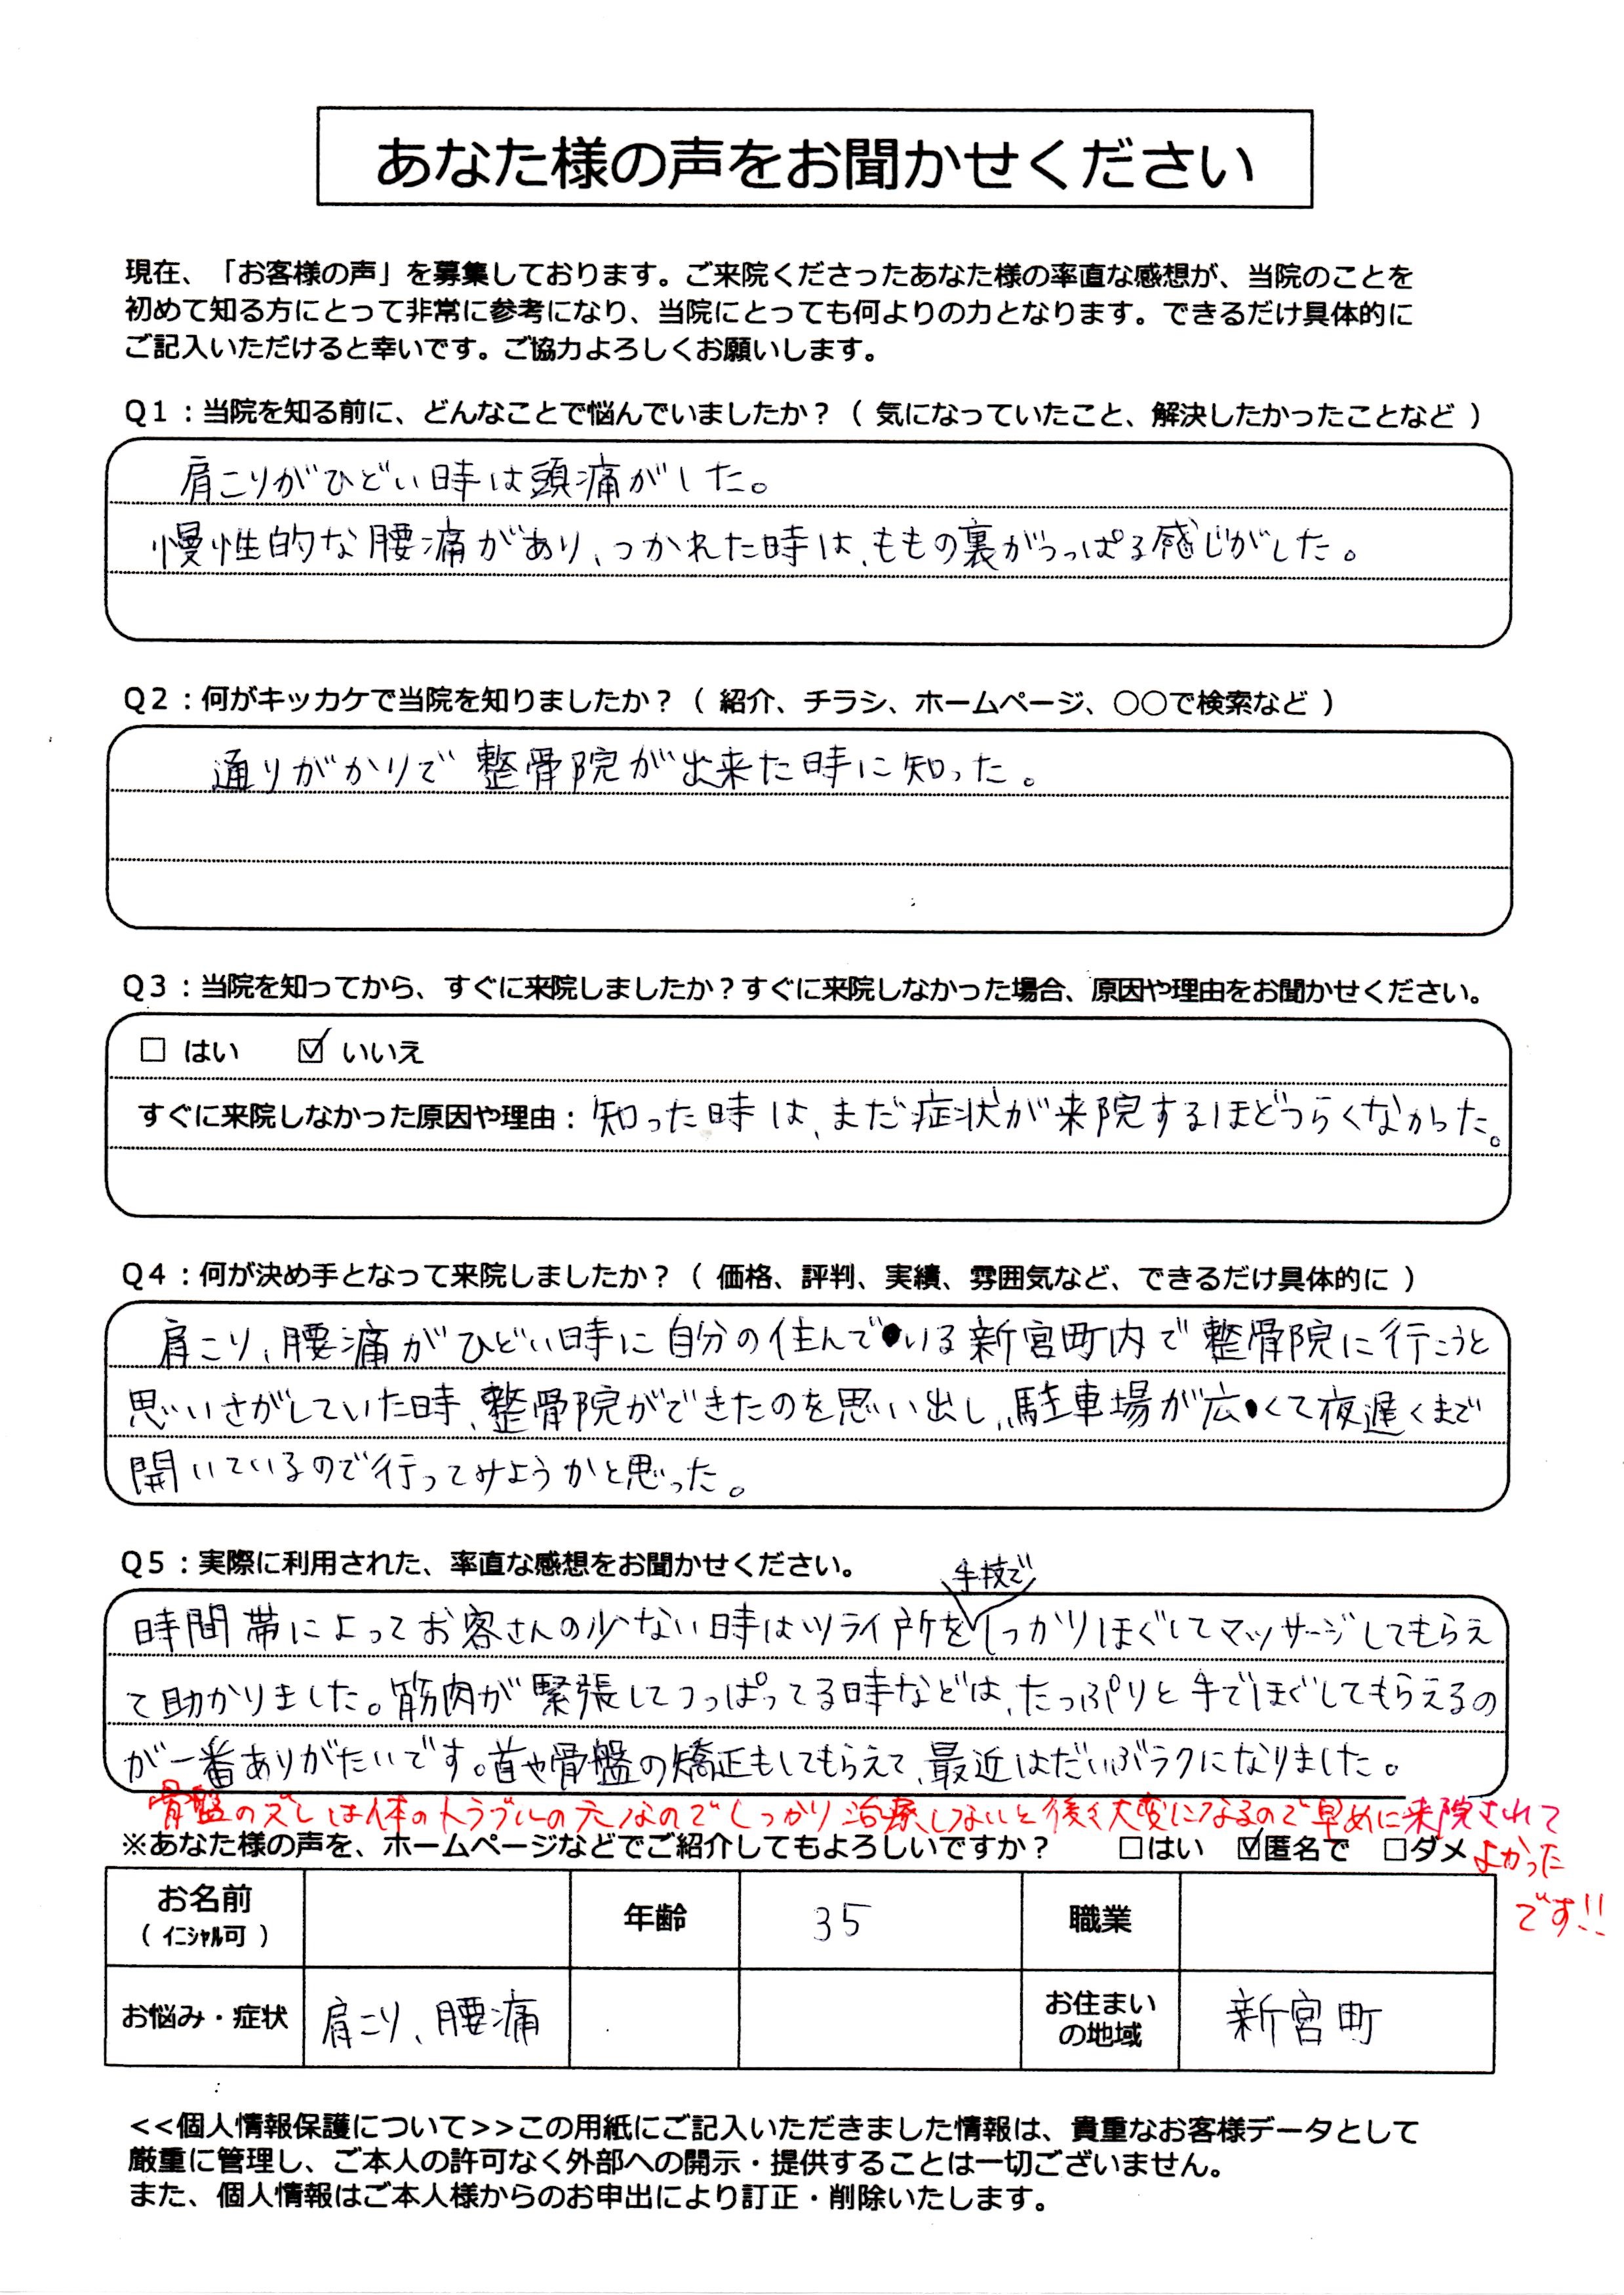 あなた様の声をお聞かせください
現在、「お客様の声」を募集しております。ご来院くださったあなた様の率直な感想が、当院のことを
初めて知る方にとって非常に参考になり、当院にとっても何よりの力となります。できるだけ具体的に
ご記入いただけると幸いです。ご協力よろしくお願いします。
Q1:当院を知る前に、どんなことで悩んでいましたか?( 気になっていたこと、解決したかったことなど )
肩こりがひどい時は頭痛がした。
慢性的な腰痛があり、つかれた時は、ももの裏がつっぱる感じがした。
Q2:何がキッカケで当院を知りましたか?( 紹介、チラシ、ホームページ、○○で検索など )
通りがかりで整骨院が出来た時に知った。
Q3:当院を知ってから、すぐに来院しましたか?すぐに来院しなかった場合、原因や理由をお聞かせください。
□ はい ☑ いいえ
すぐに来院しなかった原因や理由: 知った時は、まだ症状が来院するほどつらくなかった。
Q4:何が決め手となって来院しましたか?( 価格、評判、実績、雰囲気など、できるだけ具体的に )
肩こり、腰痛がひどい時に自分の住んでいる新宮町内で整骨院に行こうと
思いさがしていた時、整骨院ができたのを思い出し、駐車場が広くて夜遅くまで
開いているので行ってみようかと思った。
Q5:実際に利用された、率直な感想をお聞かせください。
手技で
時間帯によってお客さんの少ない時はツライ所をしっかりほぐしてマッサージしてもらえ
て助かりました。筋肉が緊張してつっぱってる時などは、たっぷりと手でほぐしてもらえるの
が一番ありがたいです。首や骨盤の矯正もしてもらえて、最近はだいぶラクになりました。
骨盤のズレは体のトラブルの元なのでしっかり治療しないと後々大変になるので早めに来院されて
※あなた様の声を、ホームページなどでご紹介してもよろしいですか? □はい ☑匿名で □ダメ
よかった
です!!
お名前 年齢 35 職業
( イニシャル可 )
お悩み・症状 肩こり、腰痛 お住まい 新宮町
の地域
<<個人情報保護について>>この用紙にご記入いただきました情報は、貴重なお客様データとして
厳重に管理し、ご本人の許可なく外部への開示・提供することは一切ございません。
また、個人情報はご本人様からのお申出により訂正・削除いたします。